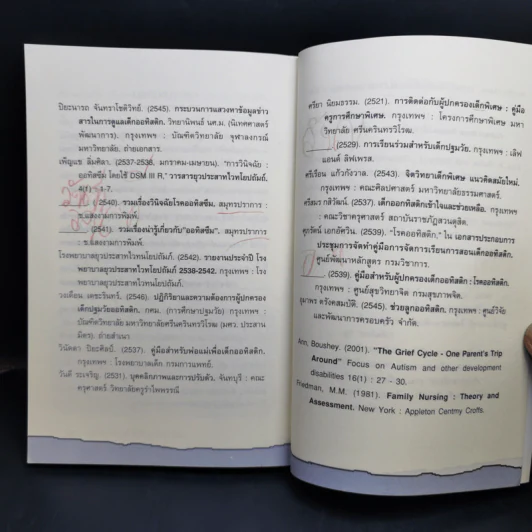 ปิยะนารถ จันทราโชติวิทย์. (2545). กระบวนการแสวงหาข้อมูลข่าว
สารในการดูแลเด็กออทิสติก. วิทยานิพนธ์ นศ.ม. (นิเทศศาสตร์
พัฒนาการ). กรุงเทพฯ : บัณฑิตวิทยาลัย จุฬาลงกรณ์
มหาวิทยาลัย. ถ่ายเอกสาร.
เพ็ญแข ลิ่มศิลา. (2537-2538, มกราคม-เมษายน). "การวินิจฉัย
ออทิสซึม โดยใช้ DSM III R." วารสารยุวประสาทไวทโยปถัมภ์.
4(1) : 1-7.
2540). รวมเรื่องวินิจฉัยโรคออทิสซึม. สมุทรปราการ
: ช.แสงงามการพิมพ์.
(2541). รวมเรื่องน่ารู้เกี่ยวกับ"ออทิสซึม". สมุทรปราการ
: ช.แสงงามการพิมพ์.
โรงพยาบาลยุวประสาทไวทโยปถัมภ์. (2542). รายงานประจำปี โรง
พยาบาลยุวประสาทไวทโยปถัมภ์ 2538-2542. กรุงเทพฯ : โรง
พยาบาลยุวประสาทไวทโยปถัมภ์.
วงเดือน เดชะรินทร์. (2546). ปฏิกิริยาและความต้องการผู้ปกครอง
เด็กปฐมวัยออทิสติก. กศม. (การศึกษาปฐมวัย) กรุงเทพฯ :
บัณฑิตวิทยาลัย มหาวิทยาลัยศรีนครินทรวิโรฒ (มศว. ประสาน
มิตร). ถ่ายสำเนา.
วินัดดา ปิยะศิลป์. (2537). คู่มือสำหรับพ่อแม่เพื่อเด็กออทิสติก.
กรุงเทพฯ : โรงพยาบาลเด็ก กรมการแพทย์.
วันดี ระเจริญ. (2531). บุคคลิกภาพและการปรับตัว. จันทบุรี : คณะ
ครุศาสตร์ วิทยาลัยครูรำไพพรรณี
ศรียา นิยมธรรม. (2521). การติดต่อกับผู้ปกครองเด็กพิเศษ : คู่มือ
ครูการศึกษาพิเศษ. กรุงเทพฯ : โครงการศึกษาพิเศษ มหา
วิทยาลัย ศรีนครินทรวิโรฒ.
(2529). การเรียนร่วมสำหรับเด็กปฐมวัย. กรุงเทพฯ : เลิฟ
แอนด์ ลิฟเพรส.
ศรีเรือน แก้วกังวาล. (2543). จิตวิทยาเด็กพิเศษ แนวคิดสมัยใหม่.
กรุงเทพฯ : คณะศิลปศาสตร์ มหาวิทยาลัยธรรมศาสตร์.
ศรีสมร กสิวัฒน์. (2537). เด็กออทิสติกเข้าใจและช่วยเหลือ. กรุงเทพฯ
: คณะวิชาครุศาสตร์ สถาบันราชภัฏสวนดุสิต.
ศุภรัตน์ เอกอัศวิน. (2539). "โรคออทิสติก." ใน เอกสารประกอบการ
ประชุมการจัดทำคู่มือการจัดการเรียนการสอนเด็กออทิสติก.
ศูนย์พัฒนาหลักสูตร กรมวิชาการ.
(2539). คู่มือสำหรับผู้ปกครองเด็กออทิสติก : โรคออทิสติก.
กรุงเทพฯ : ศูนย์สุขวิทยาจิต กรมสุขภาพจิต.
ตรังคสมบัติ. (2545). ช่วยลูกออทิสติก. กรุงเทพฯ : ศูนย์วิจัย
และพัฒนาการครอบครัว จำกัด.
Ann, Boushey. (2001). "The Grief Cycle - One Parent's Trip
Around" Focus on Autism and other development
disabilities 16(1) : 27 - 30.
Friedman, M.M. (1981). Family Nursing : Theory and
Assessment. New York : Appleton Centmy Croffs.